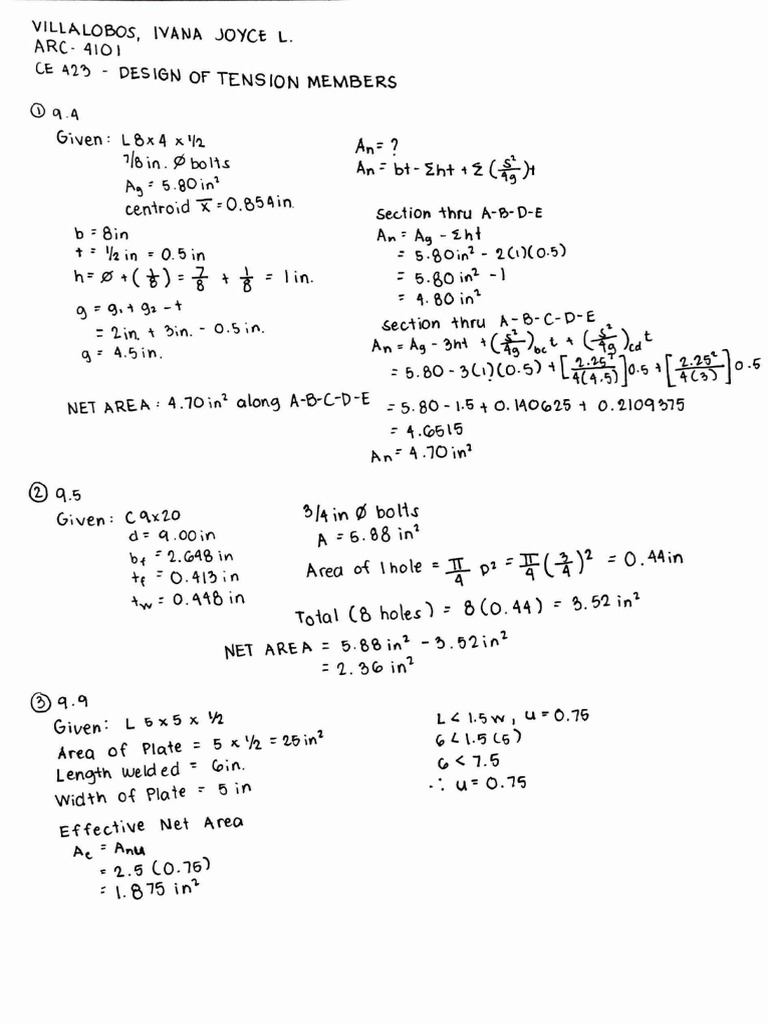 VILLALOBOS, IVANA JOYCE L.
ARC-4101
CE 423 - DESIGN OF TENSION MEMBERS
① 9.4
Given: L8x4x1/2
7/8 in. Ø bolts
Ag = 5.80 in²
centroid x̄ = 0.854 in.
b = 8in
t = 1/2 in = 0.5 in
h = Ø + (1/8) = 7/8 + 1/8 = 1 in.
g = g₁ + g₂ - t
= 2in. + 3in. - 0.5 in.
g = 4.5 in.
NET AREA: 4.70 in² along A-B-C-D-E
An = ?
An = bt - Σht + Σ(s²/4g)t
section thru A-B-D-E
An = Ag - Σht
= 5.80in² - 2(1)(0.5)
= 5.80 in² - 1
= 4.80 in²
section thru A-B-C-D-E
An = Ag - 3ht + (s²/4g)bc t + (s²/4g)cd t
= 5.80 - 3(1)(0.5) + [2.25²/4(4.5)]0.5 + [2.25²/4(3)]0.5
= 5.80 - 1.5 + 0.140625 + 0.2109375
= 4.6515
An = 4.70 in²
② 9.5
Given: C9x20
d = 9.00 in
bf = 2.648 in
tf = 0.413 in
tw = 0.448 in
3/4 in Ø bolts
A = 5.88 in²
Area of 1 hole = π/4 D² = π/4 (3/4)² = 0.44in
Total (8 holes) = 8(0.44) = 3.52 in²
NET AREA = 5.88 in² - 3.52 in²
= 2.36 in²
③ 9.9
Given: L 5x5x 1/2
Area of Plate = 5 x 1/2 = 25 in²
Length welded = 6in.
Width of Plate = 5 in
Effective Net Area
Ae = Anu
= 2.5 (0.75)
= 1.875 in²
L < 1.5w, u = 0.75
6 < 1.5(5)
6 < 7.5
∴ u = 0.75